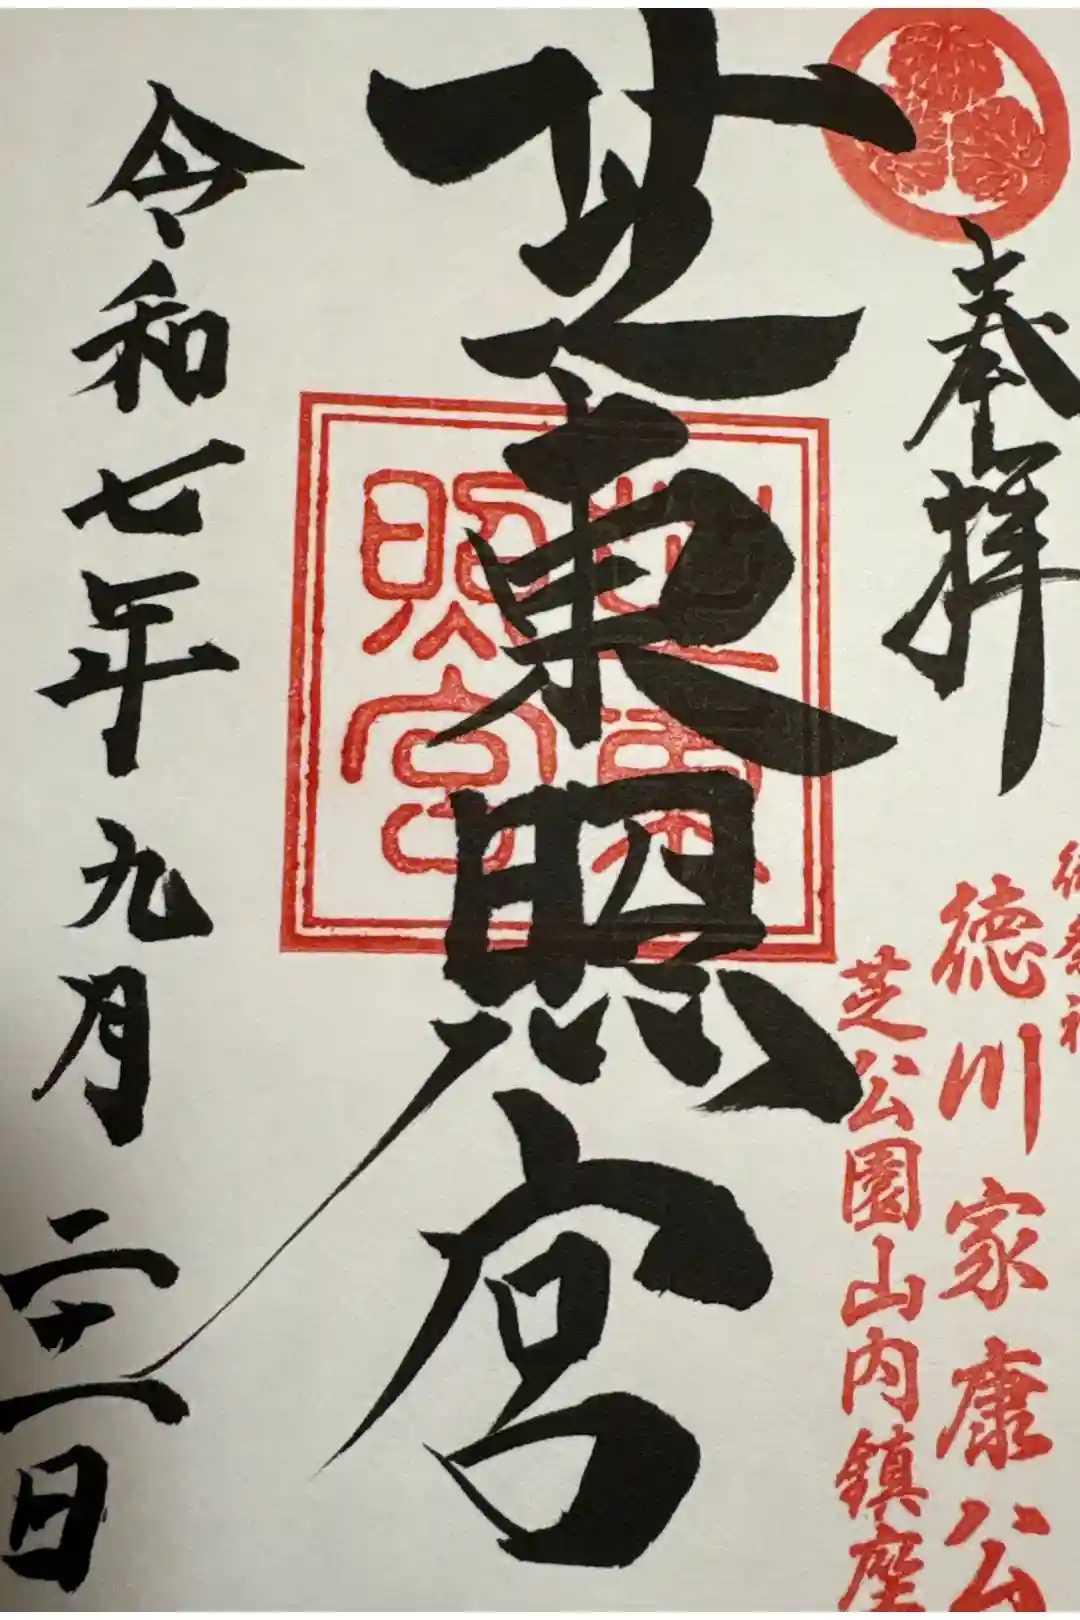 奉拝
御祭神
徳川家康公
芝公園山内鎮座
芝東照宮
芝東
照宮
令和七年九月二十一日